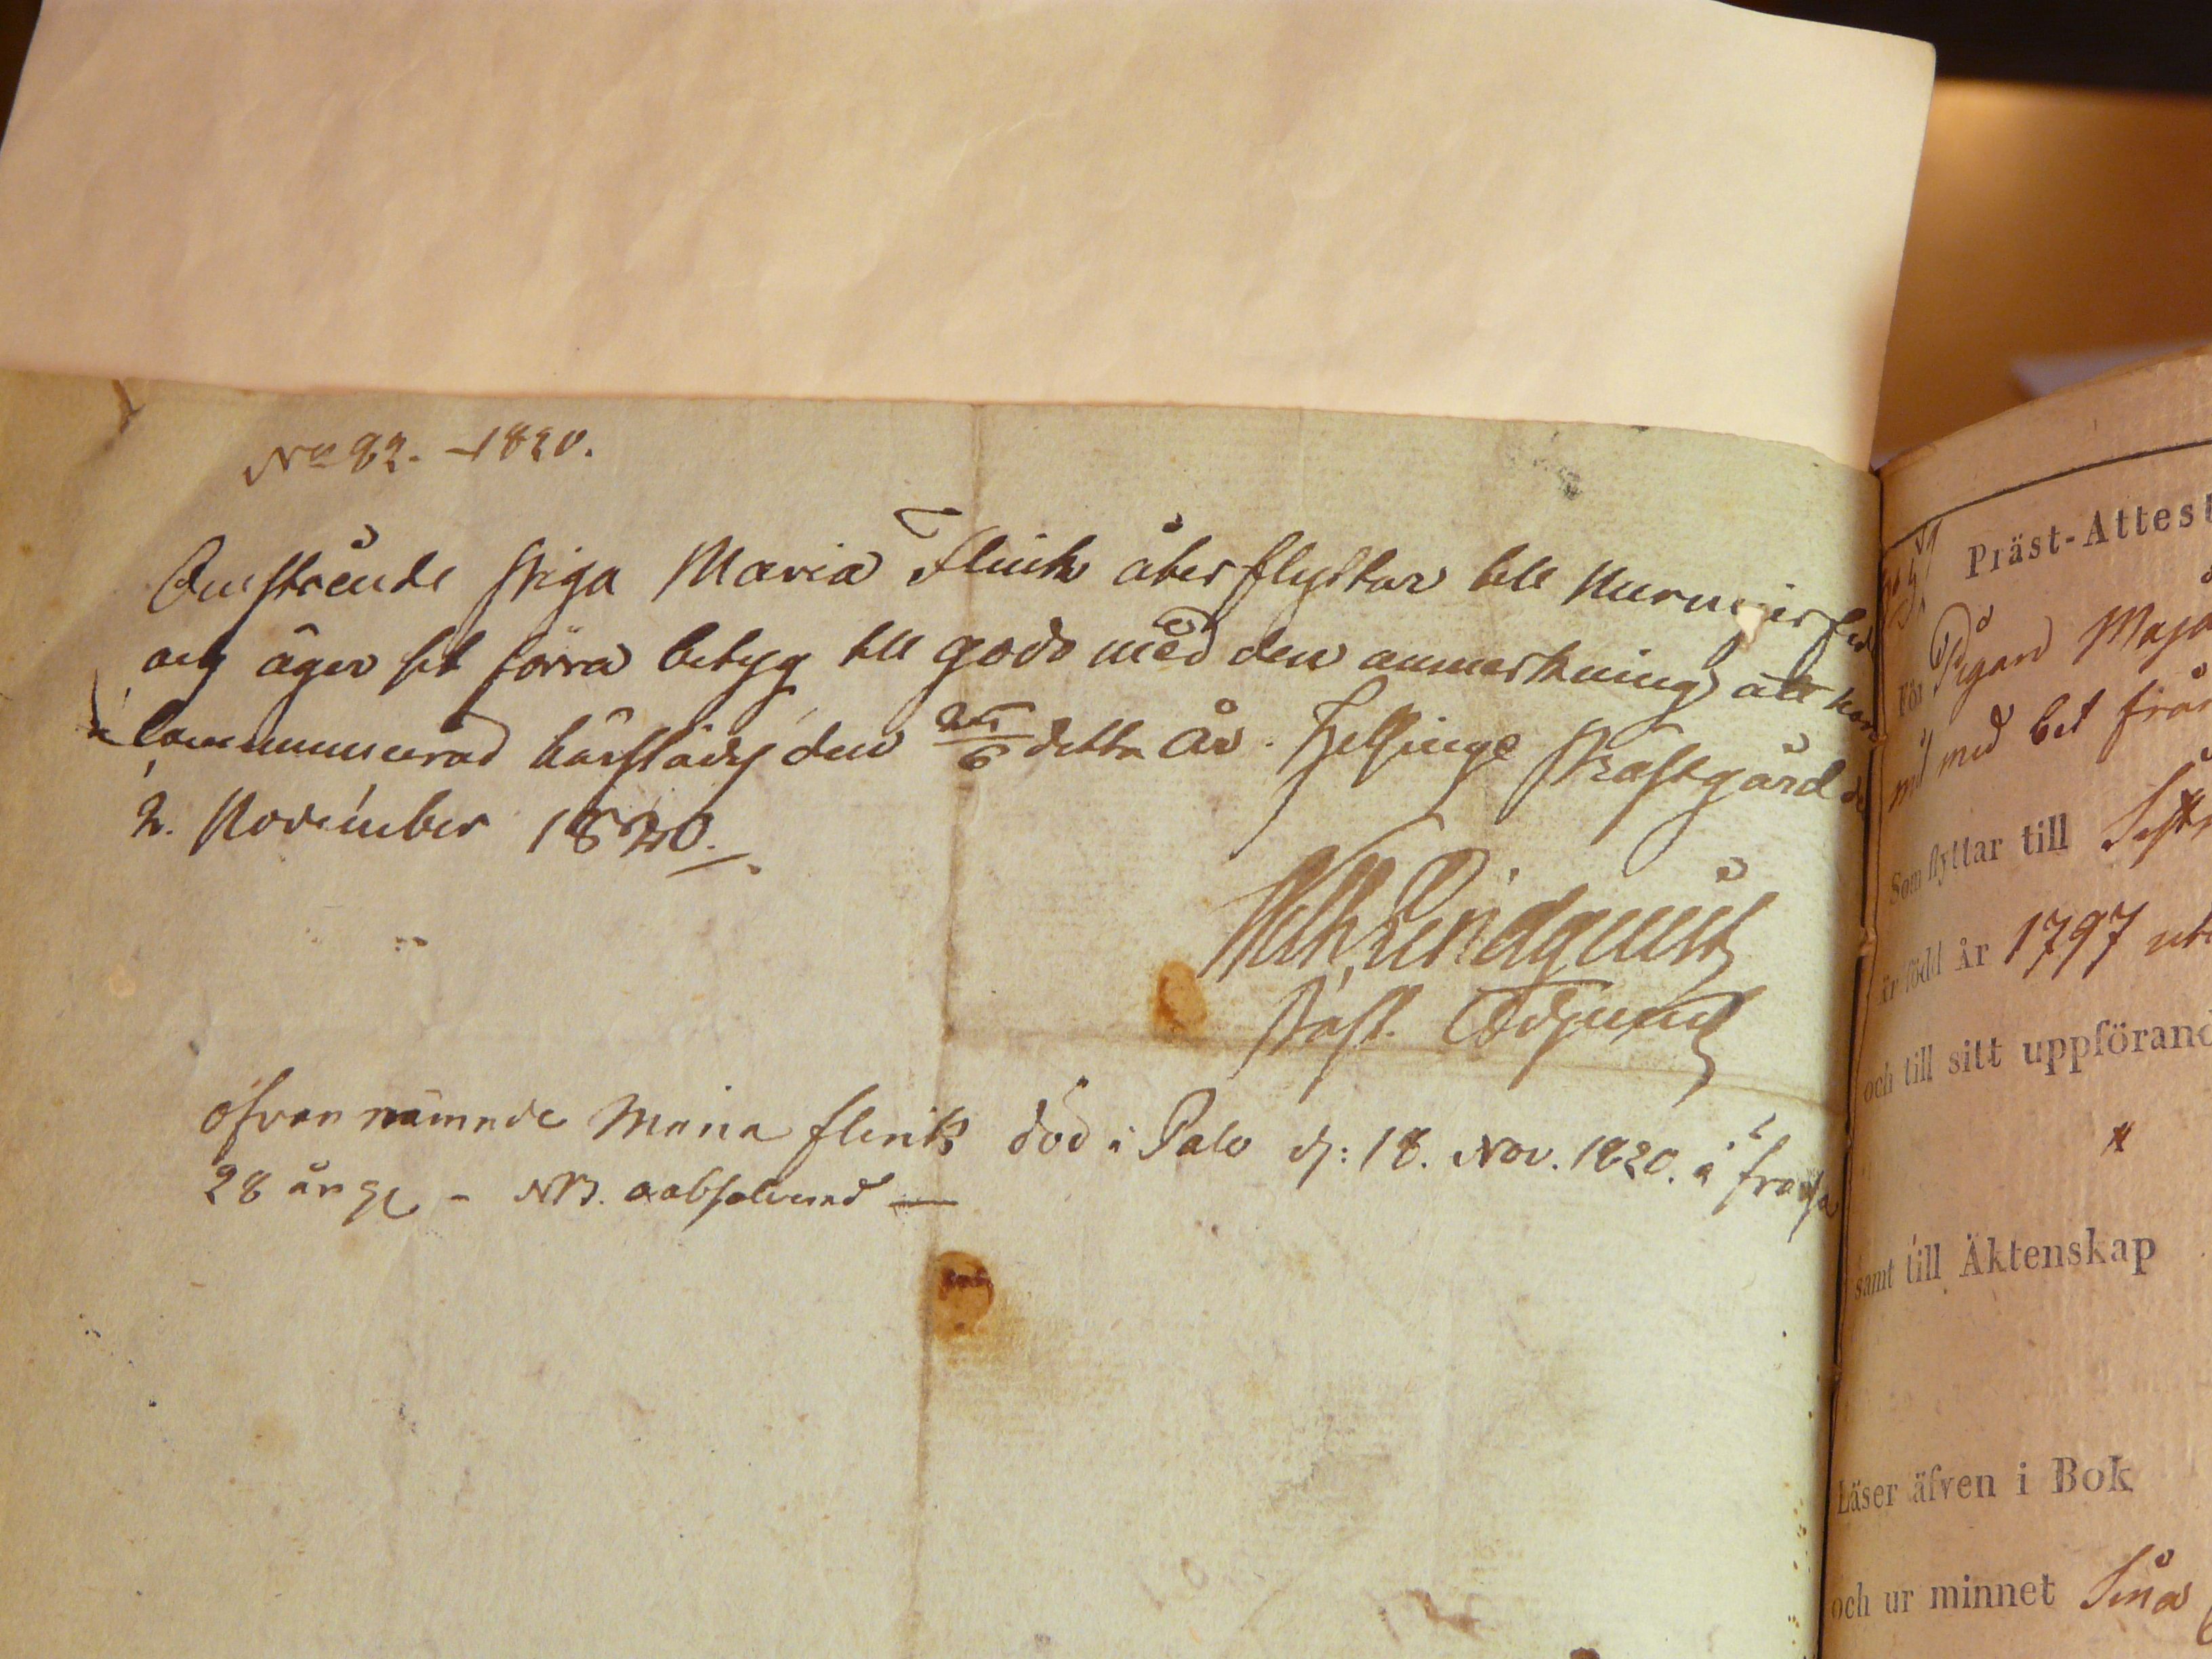 No 82. - 1820.
Omstående Piga Maria Flink återflyttar till Nurmijerfvi
och äger sit förra betyg till godo med den anmerkning att hon
communicerad härstädes den 25/6 detta år. Helsinge Prästgård d
2. November 1820.
Lindquist
Past. Adjunct
ofvannämnde Maria Flink död i Palo d: 18. Nov. 1820. i
28 år gl - NB. oabsolverad —
Präst-Attest
För Pigan Maja
med bet från
Som flyttar till
är född år 1797 uti
och till sitt uppförand
samt till Äktenskap
Läser äfven i Bok
och ur minnet